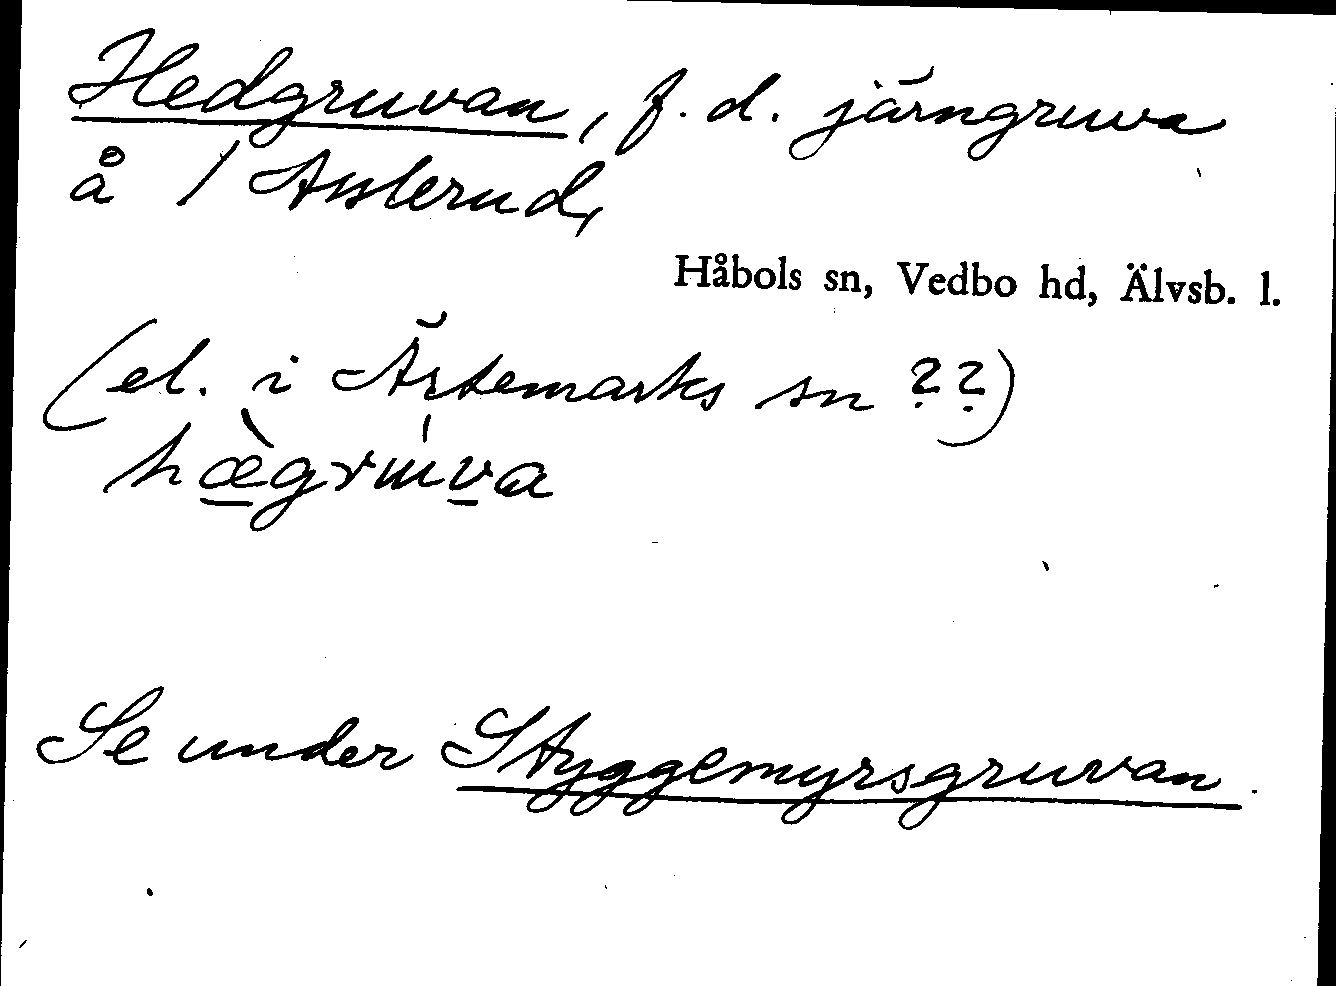 Hedgruvan, f.d. järngruva
å 1 Asslerud,
Håbols sn, Vedbo hd, Älvsb. l.
(el. i Ärtemarks sn ??)
hæ̀gruv́a
Se under Styggemyrsgruvan.